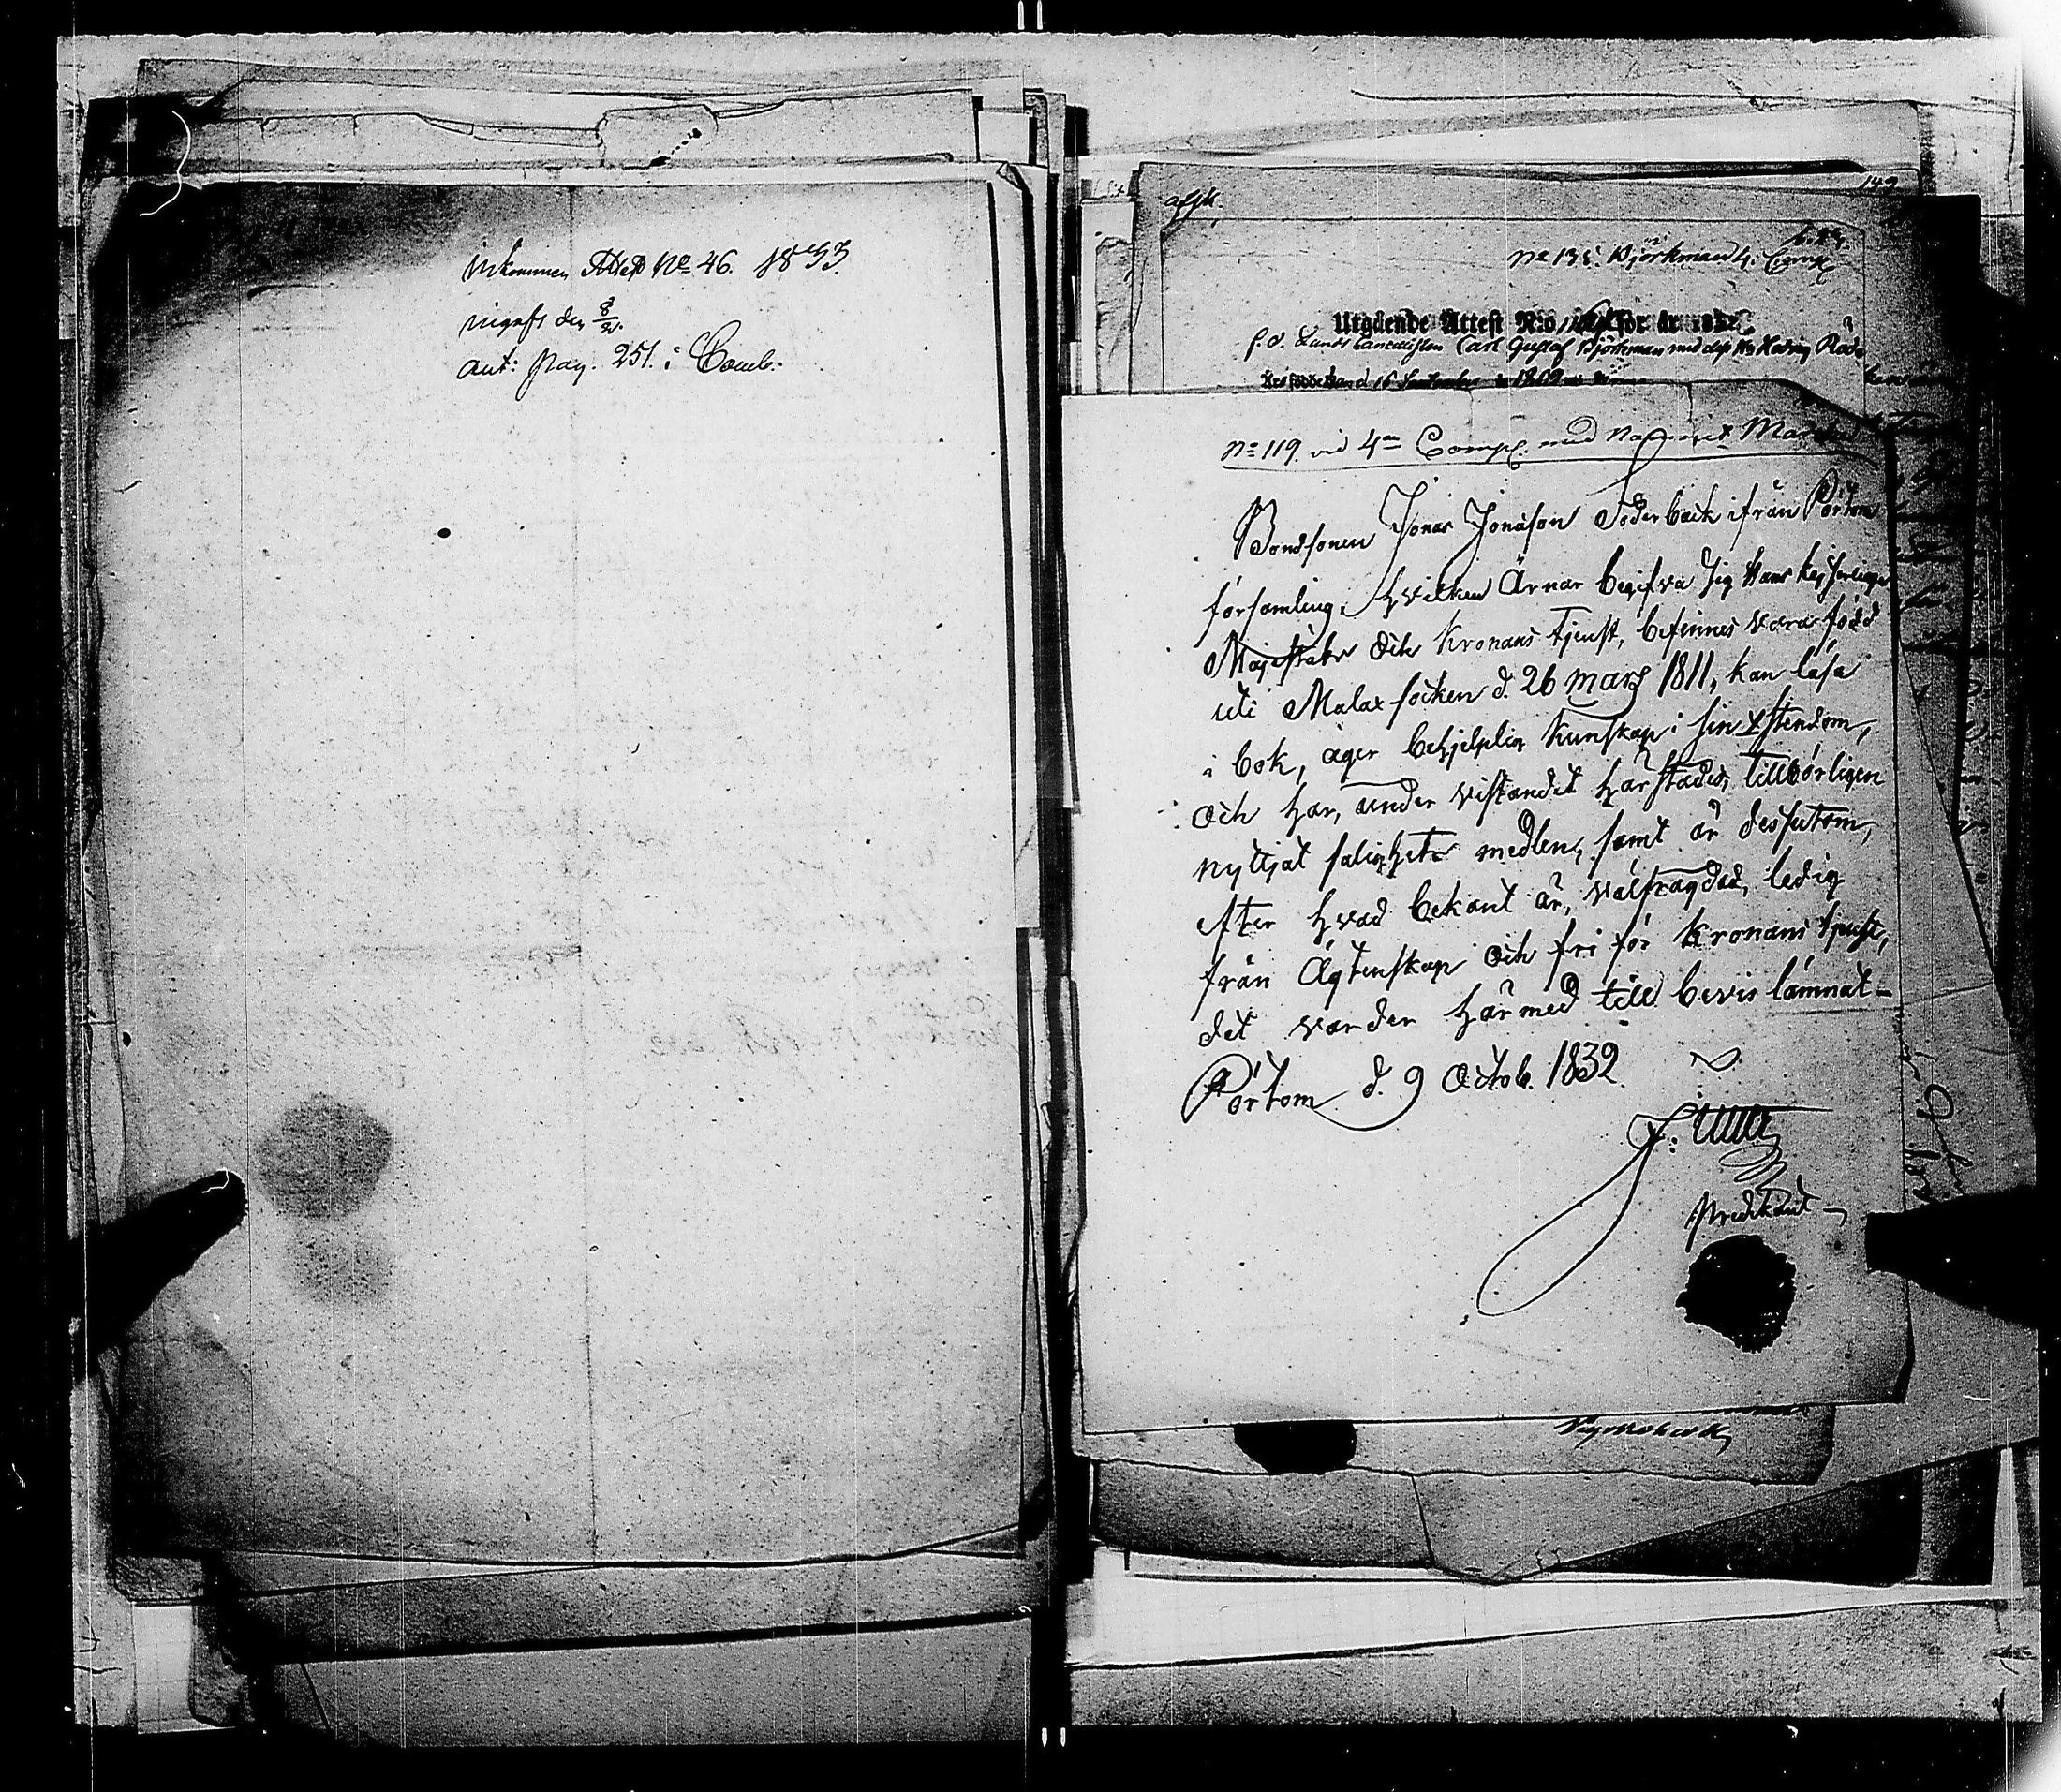 Inkommen Attest No 46. 1833.
ingift den 8/2.
ant: pag. 251. i Comb.
afsk.
149
No 135. Björkman 4. Comp.
Utgående Attest N:o för år
f. d. Lands Cancellisten Carl Gustaf Björkman med dess
16 September 1802
No 119. vid 4de Comp. med Namnet
Bondsonen Jonas Jonasson Söderback ifrån Pörtom
församling, hvilken Ärnar begifva sig Hans Kejserliga
Majestäts och Kronans tjenst, befinnes vara född
uti Malax socken d. 26 mars 1811, kan läsa
i bok, äger behjelplig kunskap i sin Xstendom,
och har, under vistandet härstädes, tillbörligen
nyttjat salighets medlen, samt är dessutom,
efter hvad bekant är, välfrägdad, ledig
från Ägtenskap och fri för Kronans tjenst,
det varder härmed till bevis lämnat_
Pörtom d. 9 Octob. 1832.
Predikant